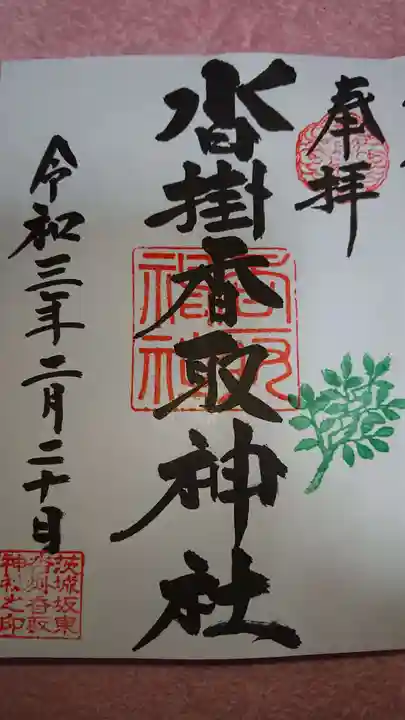 奉拝
沓掛香取神社
香取
神社
令和三年二月二十日
茨城坂東
沓掛香取
神社之印